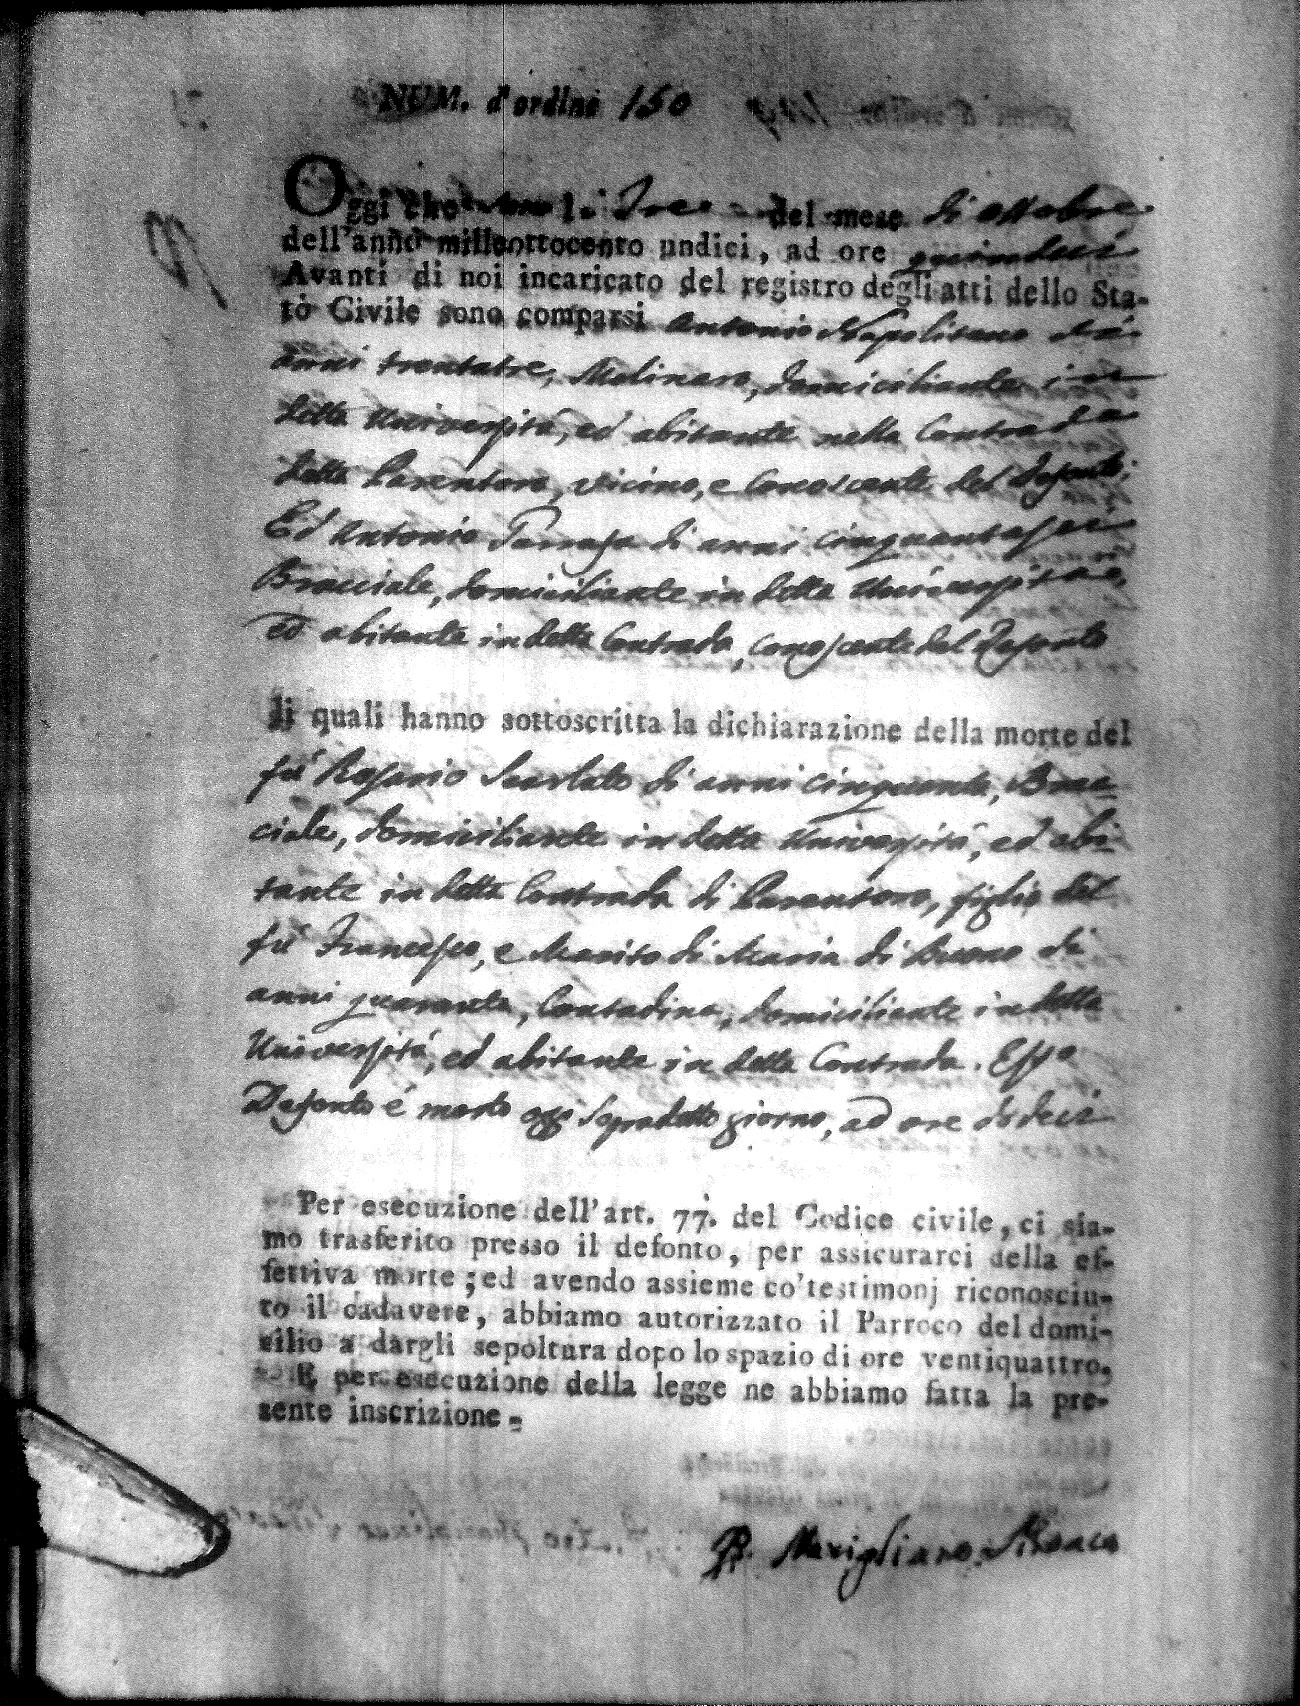 NUM. d'ordine 150
Oggi che li Tre del mese di ottobre
dell'anno milleottocento undici, ad ore quindeci
Avanti di noi incaricato del registro degli atti dello Sta-
to Civile sono comparsi Antonio Napolitano di
anni trentatre, Molinaro, domiciliante in
detta Università, ed abitante nella Contrada
detta Parentoro, vicino, e Conoscente del Defonto;
Ed Antonio di anni cinquantasei
Bracciale, domiciliante in detta Università,
ed abitante in detta Contrada, conoscente del Defonto
li quali hanno sottoscritta la dichiarazione della morte del
fù Rosario Scarlato di anni cinquanta, Brac-
ciale, domiciliante in detta Università, ed abi-
tante in detta Contrada di Parentoro, figlio del
fù Francesco, e Marito di Maria di Buono di
anni quaranta, Contadina, domiciliante in detta
Università, ed abitante in detta Contrada. Esso
Defonto é morto oggi sopradetto giorno, ad ore dodeci
Per esecuzione dell'art. 77. del Codice civile, ci sia-
mo trasferito presso il defonto, per assicurarci della ef-
fettiva morte; ed avendo assieme co'testimonj riconosciu-
to il cadavere, abbiamo autorizzato il Parroco del domi-
cilio a dargli sepoltura dopo lo spazio di ore ventiquattro.
E per esecuzione della legge ne abbiamo fatta la pre-
sente inscrizione.